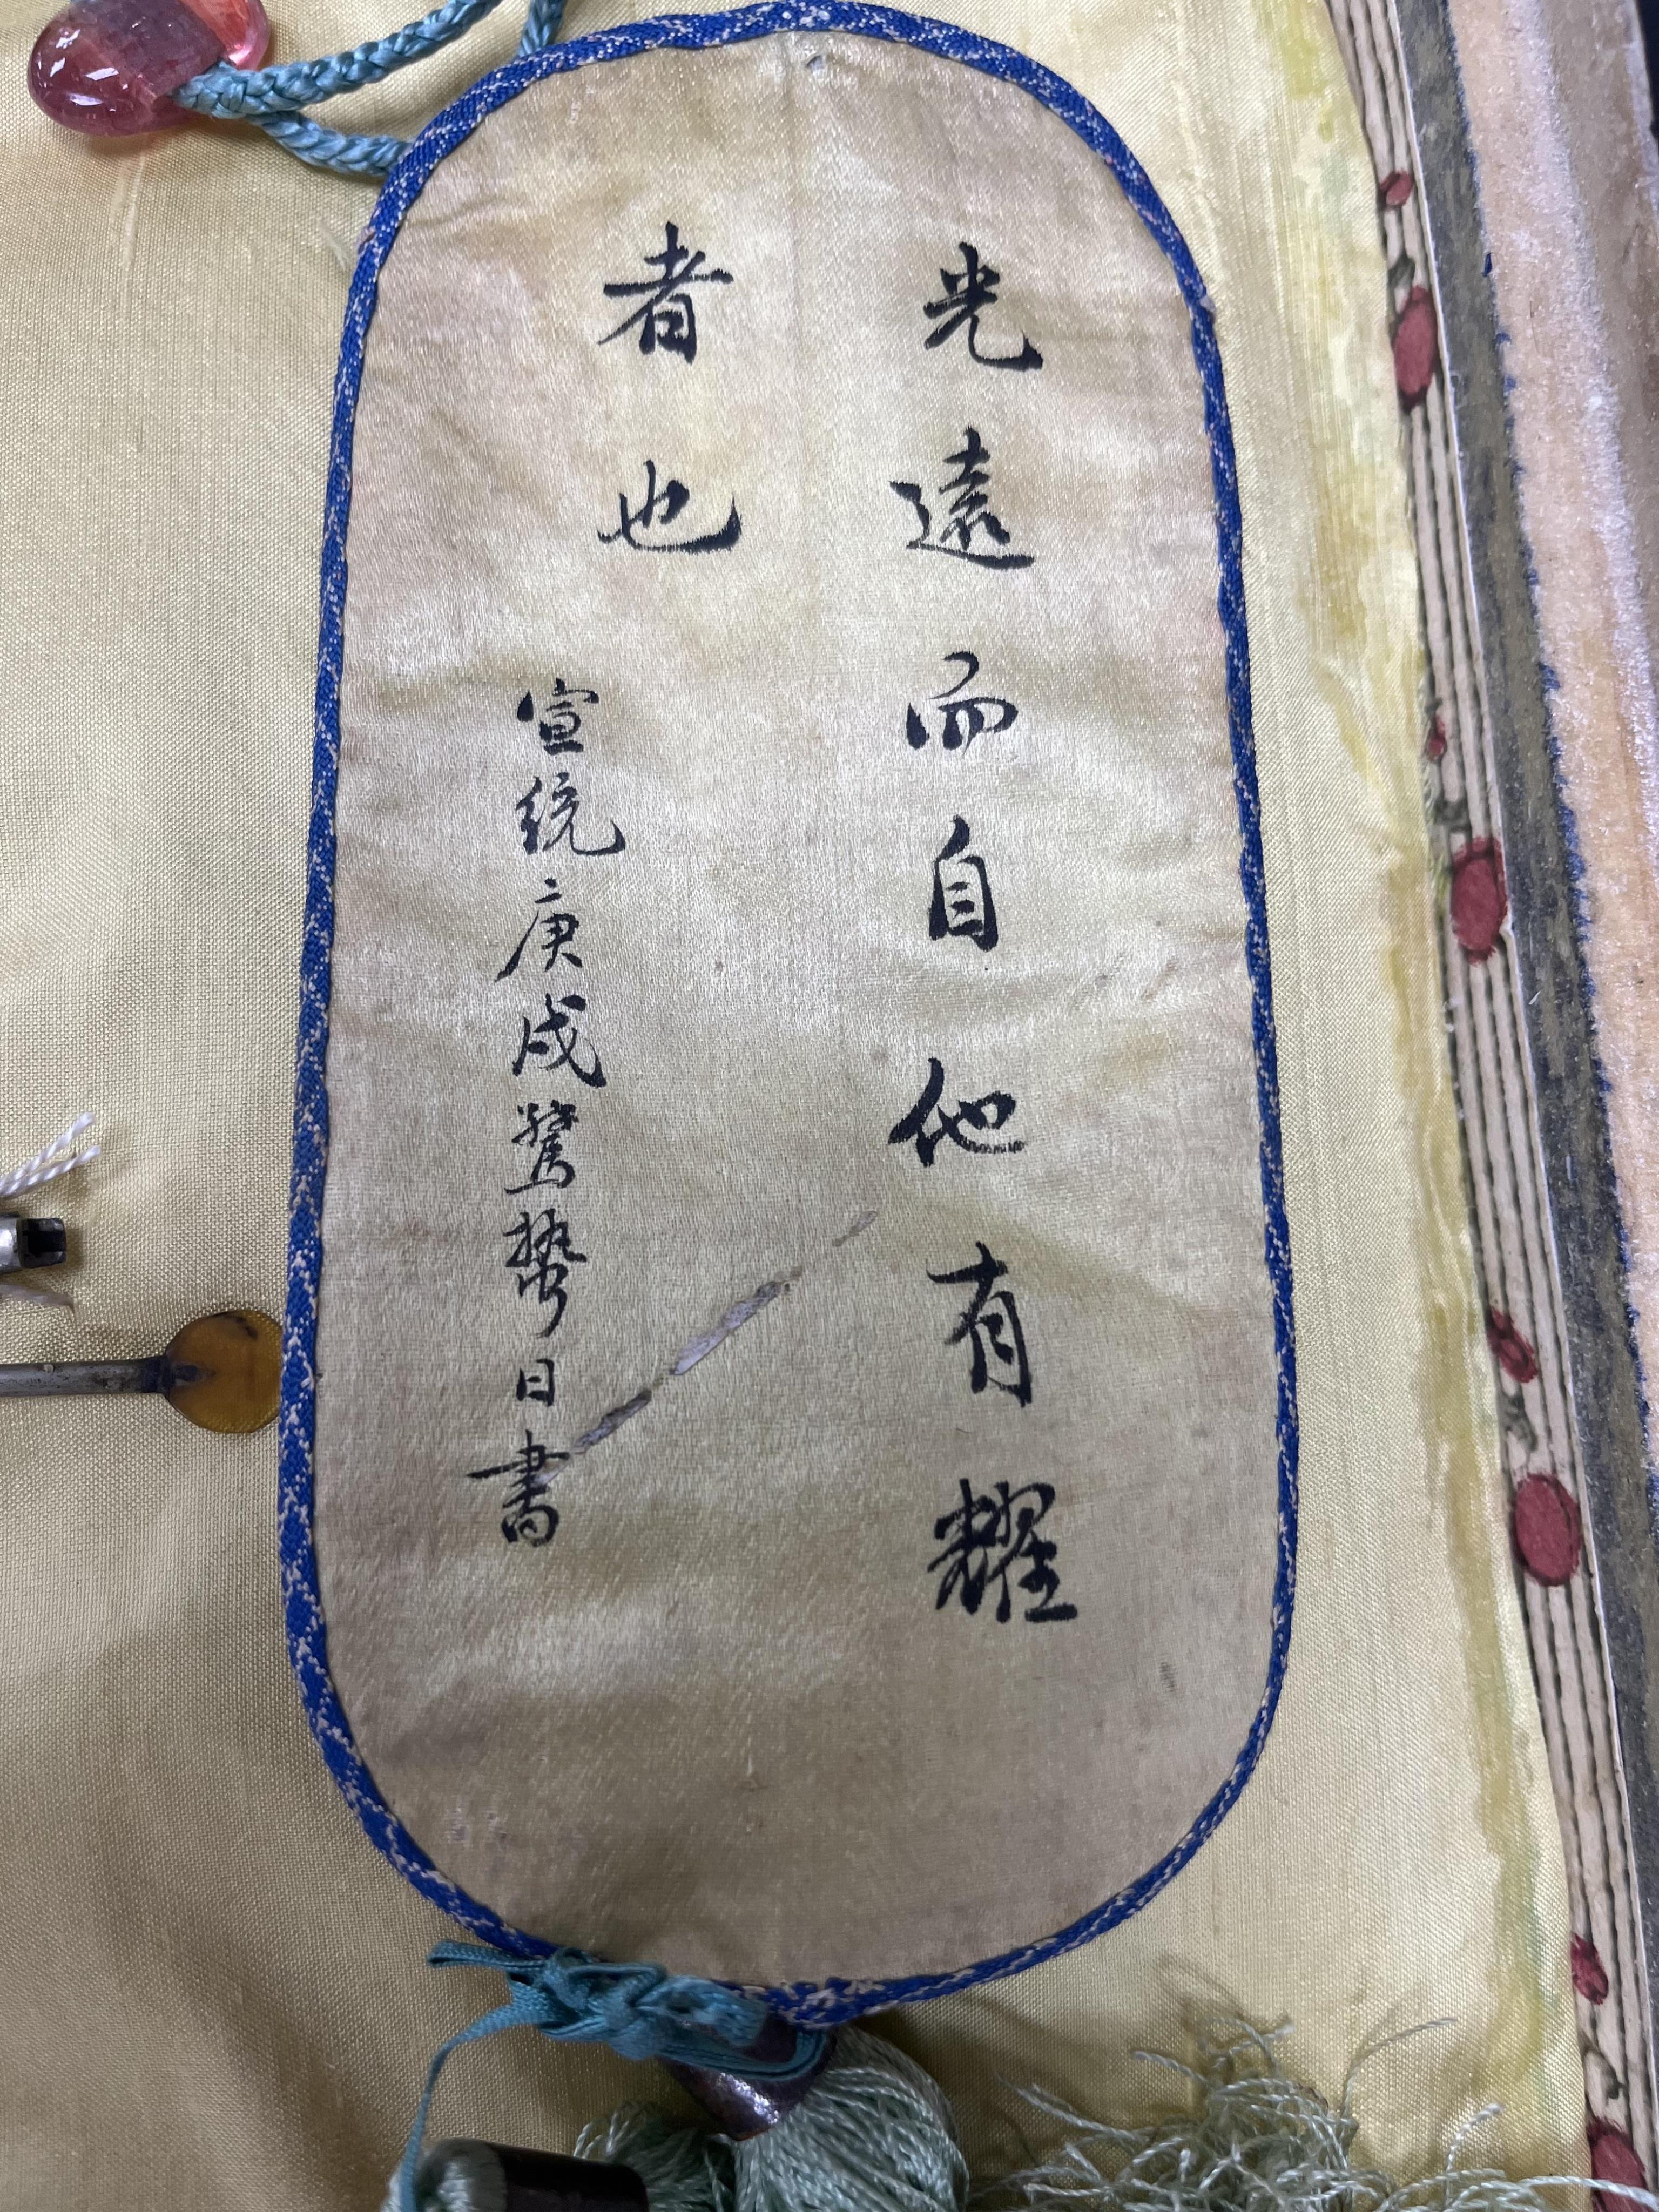 光遠而自他有耀
者也
宣統庚戌驚蟄日書